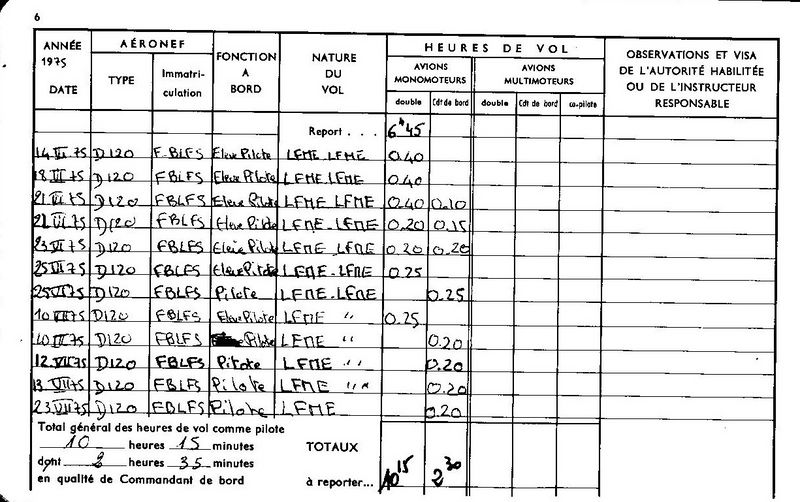 6
ANNÉE 1975 DATE AÉRONEF TYPE Immatri-culation FONCTION A BORD NATURE DU VOL HEURES DE VOL AVIONS MONOMOTEURS double Cdt de bord AVIONS MULTIMOTEURS double Cdt de bord co-pilote OBSERVATIONS ET VISA DE L'AUTORITÉ HABILITÉE OU DE L'INSTRUCTEUR RESPONSABLE
Report . . . 6h45
14 VI 75 D120 F-BLFS Eleve Pilote LFME LFME 0.40
18 VI 75 D120 FBLFS Eleve Pilote LFME LFME 0.40
21 VI 75 D120 FBLFS Eleve Pilote LFME LFME 0.40 0.10
22 VI 75 D120 FBLFS Eleve Pilote LFME-LFME 0.20 0.15
23 VI 75 D120 FBLFS Eleve Pilote LFME LFME 0.20 0.20
25 VI 75 D120 FBLFS Eleve Pilote LFME-LFME 0.25
25 VI 75 D120 FBLFS Pilote LFME-LFME 0.25
10 VII 75 D120 FBLFS Eleve Pilote LFME " 0.25
10 VII 75 D120 FBLFS Pilote LFME " 0.20
12 VII 75 D120 FBLFS Pilote LFME " 0.20
13 VII 75 D120 FBLFS Pilote LFME " " 0.20
23 VII 75 D120 FBLFS Pilote LFME 0.20
Total général des heures de vol comme pilote
10 heures 15 minutes TOTAUX
dont 2 heures 35 minutes 10 15 2 30
en qualité de Commandant de bord à reporter...